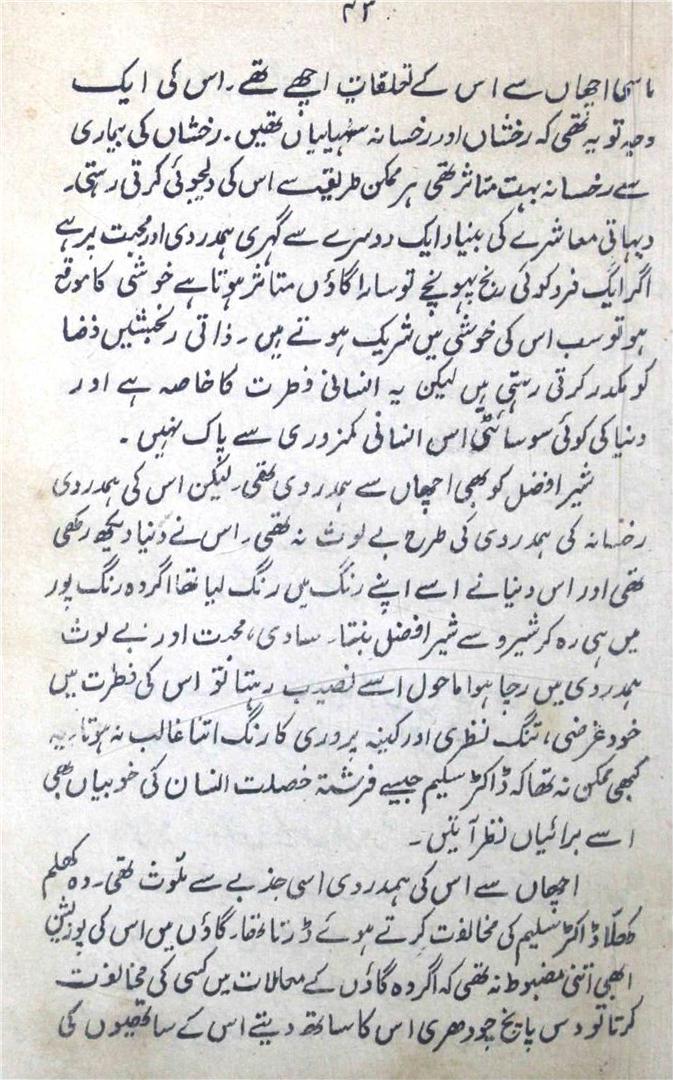 ۴۳
ماسی اچھاں سے اس کے تعلقات اچھے تھے۔ اس کی ایک
وجہ تو یہ تھی کہ رخشاں اور رخسانہ سہیلیاں تھیں۔ رخشاں کی بیماری
سے رخسانہ بہت متاثر تھی ہر ممکن طریقے سے اس کی دلجوئی کرتی رہتی۔
دیہاتی معاشرے کی بنیاد ایک دوسرے سے گہری ہمدردی اور محبت پر ہے
اگر ایک فرد کو کوئی رنج پہونچے تو سارا گاؤں متاثر ہوتا ہے خوشی کا موقع
ہو تو سب اس کی خوشی میں شریک ہوتے ہیں۔ ذاتی رنجشیں فضا
کو مکدر کرتی رہتی ہیں لیکن یہ انسانی فطرت کا خاصہ ہے اور
دنیا کی کوئی سوسائٹی اس انسانی کمزوری سے پاک نہیں۔
شیر افضل کو بھی اچھاں سے ہمدردی تھی۔ لیکن اس کی ہمدردی
رخسانہ کی ہمدردی کی طرح بے لوث نہ تھی۔ اس نے دنیا دیکھ رکھی
تھی اور اس دنیا نے اسے اپنے رنگ میں رنگ لیا تھا اگر وہ رنگ پور
میں ہی رہ کر شیرو سے شیر افضل بنتا۔ سادگی، محبت اور بے لوث
ہمدردی میں رچا ہوا ماحول اسے نصیب رہتا تو اس کی فطرت میں
خود غرضی، تنگ نظری اور کینہ پروری کا رنگ اتنا غالب نہ ہوتا۔ یہ
کبھی ممکن نہ تھا کہ ڈاکٹر سلیم جیسے فرشتہ خصلت انسان کی خوبیاں بھی
اسے برائیاں نظر آتیں۔
اچھاں سے اس کی ہمدردی اسی جذبے سے ملوّث تھی۔ وہ کھلم
کھلّا ڈاکٹر سلیم کی مخالفت کرتے ہوئے ڈرتا تھا۔ گاؤں میں اس کی پوزیشن
ابھی اتنی مضبوط نہ تھی کہ اگر وہ گاؤں کے معاملات میں کسی کی مخالفت
کرتا تو دس پانچ چودھری اس کا ساتھ دیتے اس کے ساتھیوں کی